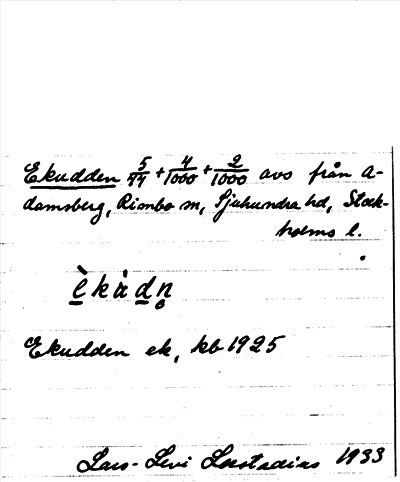 Ekudden 5/44 + 4/1000 + 2/1000 avs från A-
damsberg, Rimbo sn, Sjuhundra hd, Stock-
holms l.
èkàdn̥
Ekudden ek, kb 1925
Lars-Levi Læstadius 1933